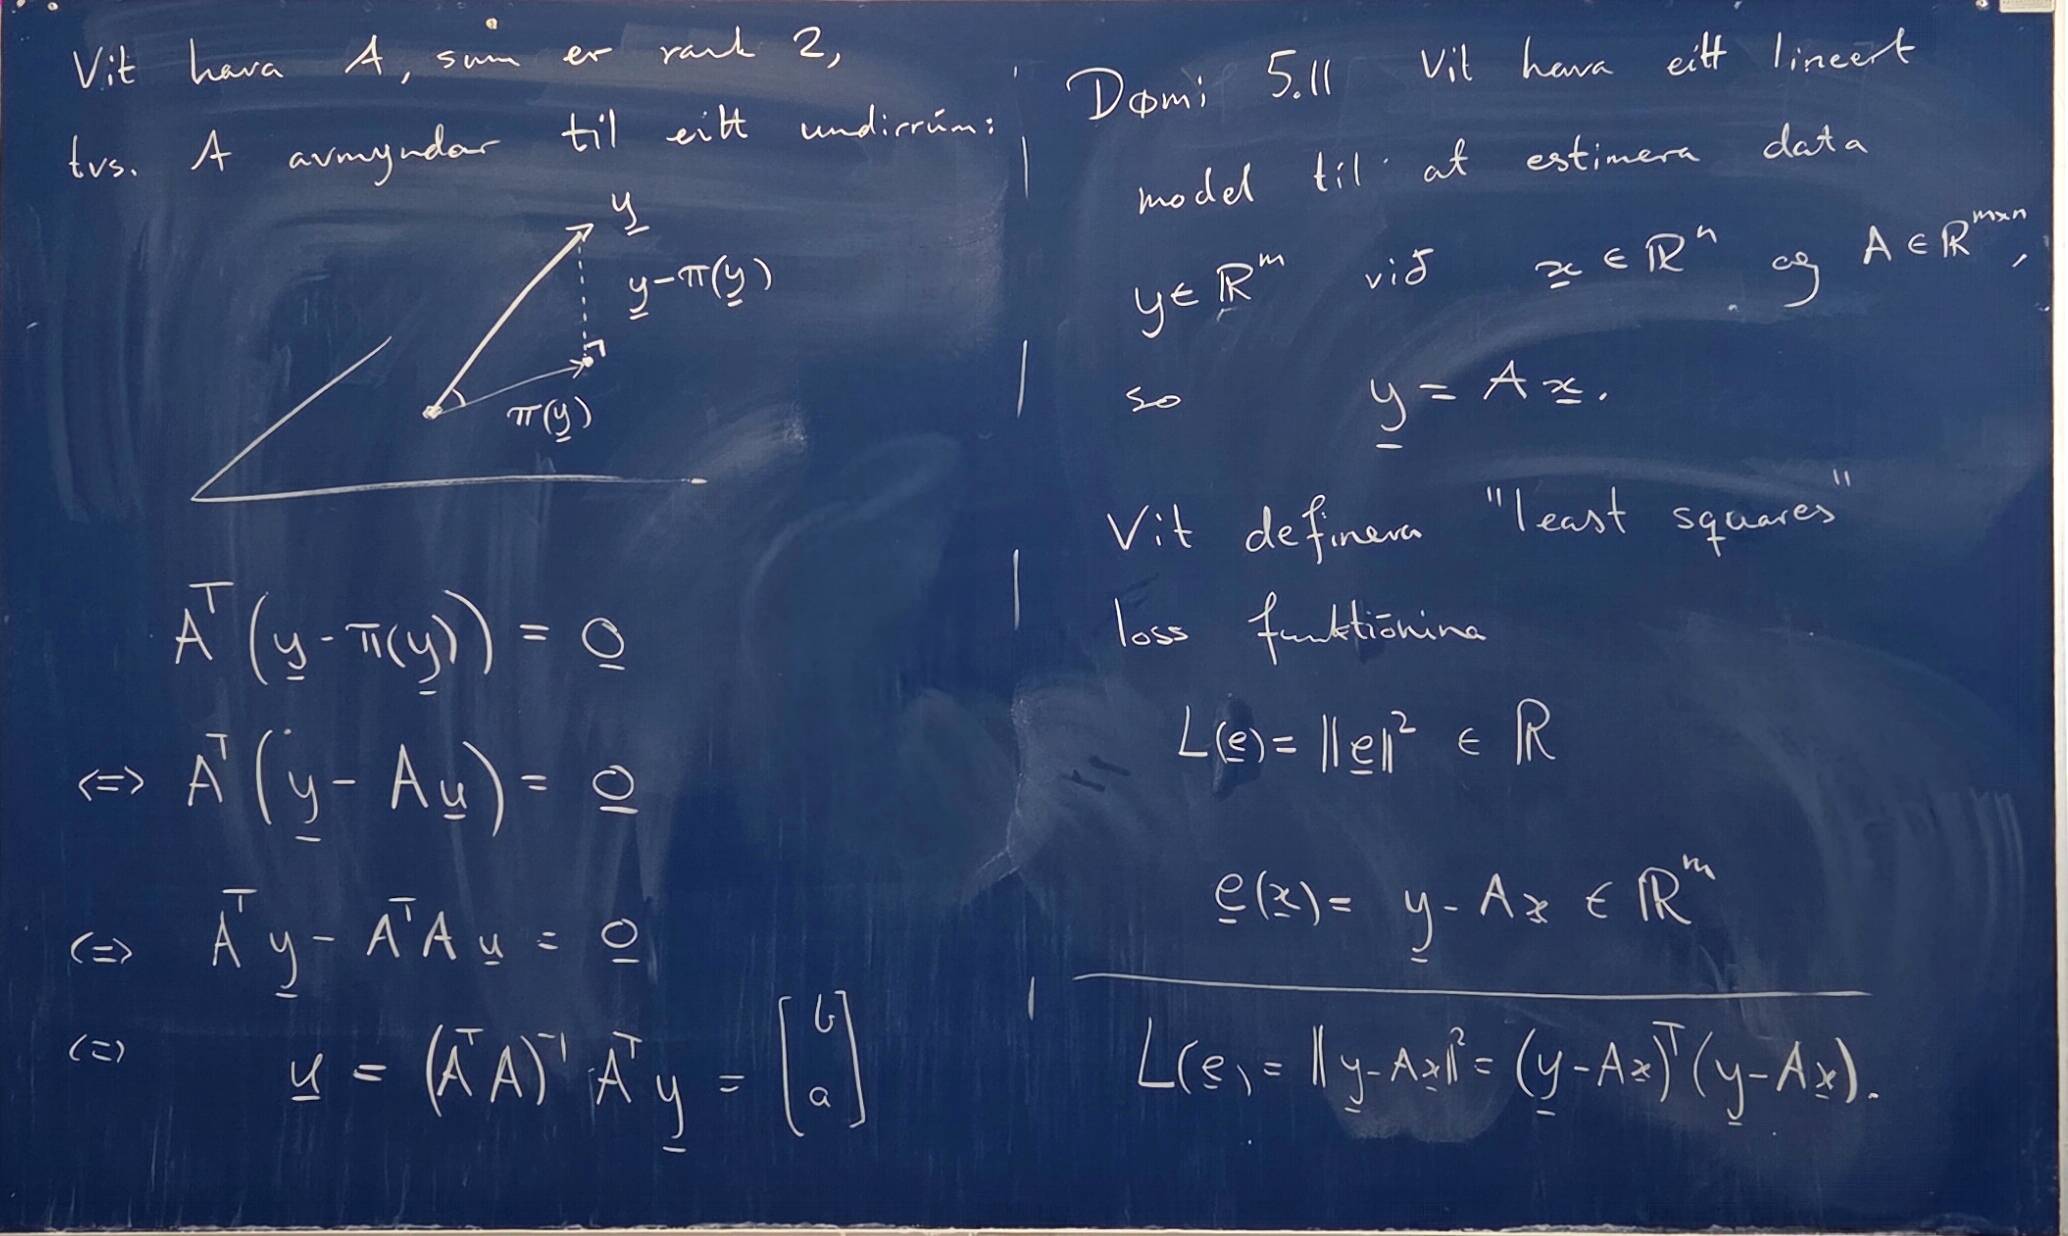 Vit hava A, sum er rank 2,
tvs. A avmyndar til eitt undirrúm:
y
y-π(y)
π(y)
Aᵀ(y-π(y)) = 0
<=> Aᵀ(y - Au) = 0
<=> Aᵀy - AᵀAu = 0
<=> u = (AᵀA)⁻¹ Aᵀy = [b a]
Dømi 5.11 Vit hava eitt lineert
model til at estimera data
y∈ℝᵐ við x∈ℝⁿ og A∈ℝᵐˣⁿ,
so y = Ax.
Vit definera "least squares"
loss funktiónina
L(e) = ||e||² ∈ ℝ
e(x) = y - Ax ∈ ℝᵐ
L(e) = ||y-Ax||² = (y-Ax)ᵀ(y-Ax).